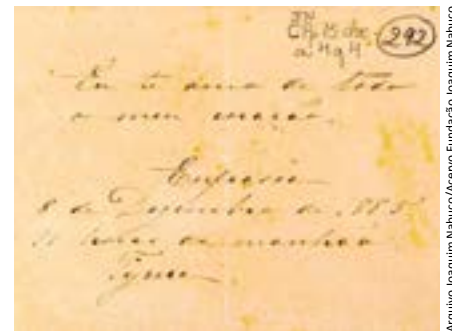 JN
CP
292
Eu te amo de todo
o meu coração.
Eufrasia
8 de Dezembro de 1885
11 horas da manhã
Arquivo Joaquim Nabuco/Acervo Fundação Joaquim Nabuco